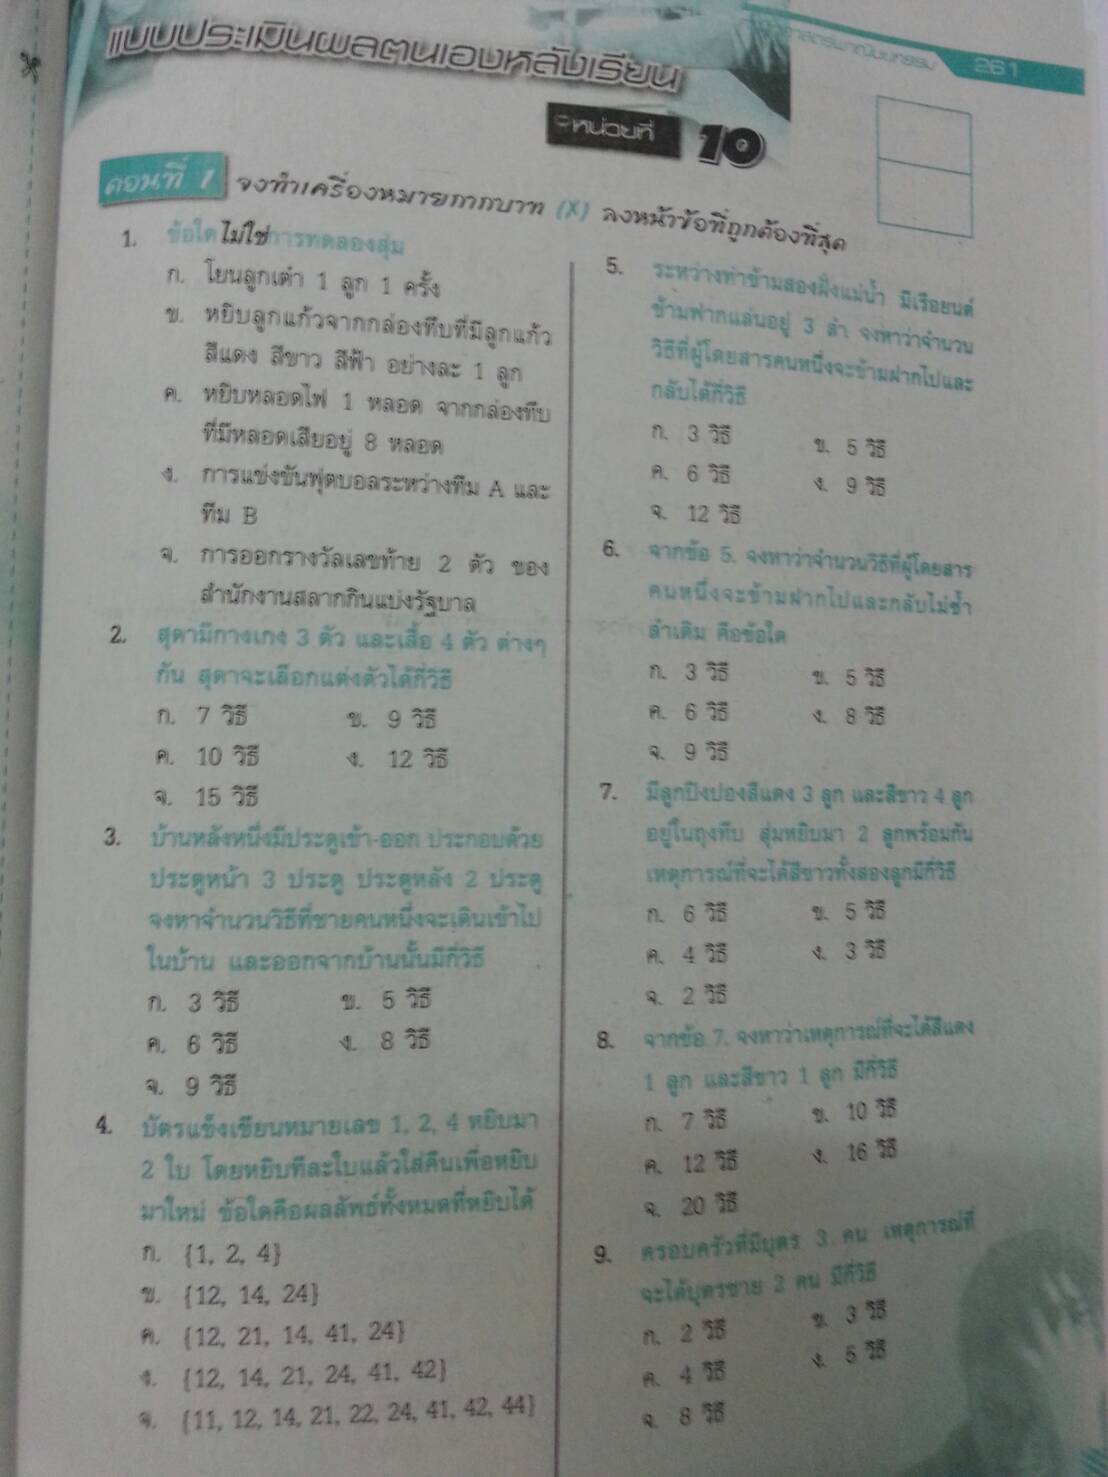 261
แบบประเมินผลตนเองหลังเรียน
หน่วยที่ 10
ตอนที่ 1 จงทำเครื่องหมายกากบาท (X) ลงหน้าข้อที่ถูกต้องที่สุด
1. ข้อใดไม่ใช่การทดลองสุ่ม
ก. โยนลูกเต๋า 1 ลูก 1 ครั้ง
ข. หยิบลูกแก้วจากกล่องทึบที่มีลูกแก้ว
สีแดง สีขาว สีฟ้า อย่างละ 1 ลูก
ค. หยิบหลอดไฟ 1 หลอด จากกล่องทึบ
ที่มีหลอดเสียอยู่ 8 หลอด
ง. การแข่งขันฟุตบอลระหว่างทีม A และ
ทีม B
จ. การออกรางวัลเลขท้าย 2 ตัว ของ
สำนักงานสลากกินแบ่งรัฐบาล
2. สุดามีกางเกง 3 ตัว และเสื้อ 4 ตัว ต่างๆ
กัน สุดาจะเลือกแต่งตัวได้กี่วิธี
ก. 7 วิธี ข. 9 วิธี
ค. 10 วิธี ง. 12 วิธี
จ. 15 วิธี
3. บ้านหลังหนึ่งมีประตูเข้า-ออก ประกอบด้วย
ประตูหน้า 3 ประตู ประตูหลัง 2 ประตู
จงหาจำนวนวิธีที่ชายคนหนึ่งจะเดินเข้าไป
ในบ้าน และออกจากบ้านนั้นมีกี่วิธี
ก. 3 วิธี ข. 5 วิธี
ค. 6 วิธี ง. 8 วิธี
จ. 9 วิธี
4. บัตรแข็งเขียนหมายเลข 1, 2, 4 หยิบมา
2 ใบ โดยหยิบทีละใบแล้วใส่คืนเพื่อหยิบ
มาใหม่ ข้อใดคือผลลัพธ์ทั้งหมดที่หยิบได้
ก. {1, 2, 4}
ข. {12, 14, 24}
ค. {12, 21, 14, 41, 24}
ง. {12, 14, 21, 24, 41, 42}
จ. {11, 12, 14, 21, 22, 24, 41, 42, 44}
5. ระหว่างท่าข้ามสองฝั่งแม่น้ำ มีเรือยนต์
ข้ามฟากแล่นอยู่ 3 ลำ จงหาว่าจำนวน
วิธีที่ผู้โดยสารคนหนึ่งจะข้ามฝากไปและ
กลับได้กี่วิธี
ก. 3 วิธี ข. 5 วิธี
ค. 6 วิธี ง. 9 วิธี
จ. 12 วิธี
6. จากข้อ 5. จงหาว่าจำนวนวิธีที่ผู้โดยสาร
คนหนึ่งจะข้ามฝากไปและกลับไม่ซ้ำ
ลำเดิม คือข้อใด
ก. 3 วิธี ข. 5 วิธี
ค. 6 วิธี ง. 8 วิธี
จ. 9 วิธี
7. มีลูกปิงปองสีแดง 3 ลูก และสีขาว 4 ลูก
อยู่ในถุงทึบ สุ่มหยิบมา 2 ลูกพร้อมกัน
เหตุการณ์ที่จะได้สีขาวทั้งสองลูกมีกี่วิธี
ก. 6 วิธี ข. 5 วิธี
ค. 4 วิธี ง. 3 วิธี
จ. 2 วิธี
8. จากข้อ 7. จงหาว่าเหตุการณ์ที่จะได้สีแดง
1 ลูก และสีขาว 1 ลูก มีกี่วิธี
ก. 7 วิธี ข. 10 วิธี
ค. 12 วิธี ง. 16 วิธี
จ. 20 วิธี
9. ครอบครัวที่มีบุตร 3 คน เหตุการณ์ที่
จะได้บุตรชาย 2 คน มีกี่วิธี
ก. 2 วิธี ข. 3 วิธี
ค. 4 วิธี ง. 5 วิธี
จ. 8 วิธี